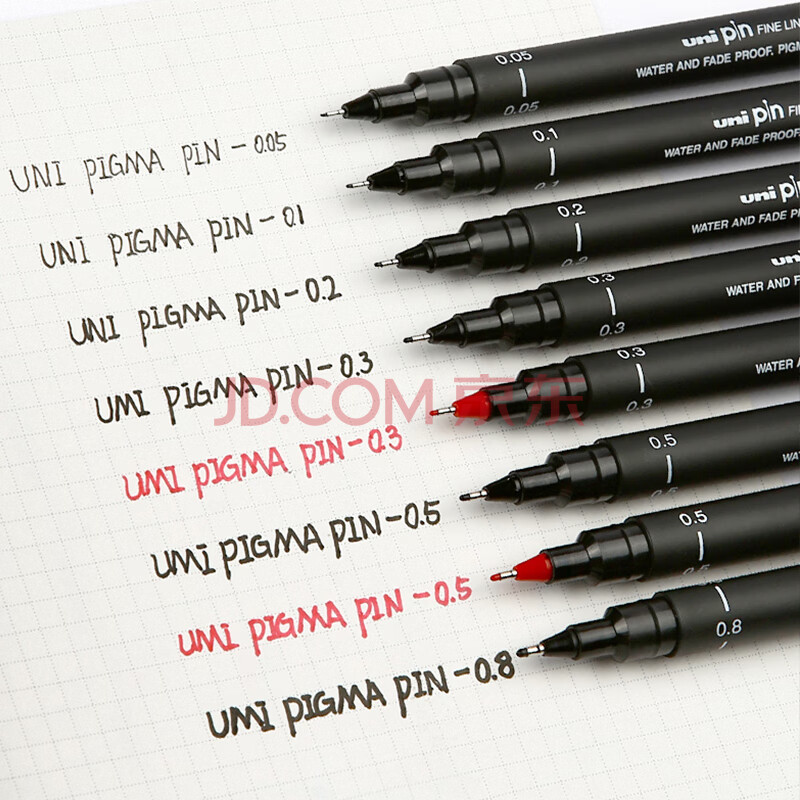 0.05
uni pin FINE LIN
WATER AND FADE PROOF, PIGM
0.05
UNI PIGMA PIN - 0.05
0.1
uni pin FI
WATER AND FADE PROOF
0.1
UNI PIGMA PIN - 0.1
0.2
uni pi
WATER AND FADE P
0.2
UNI PIGMA PIN - 0.2
0.3
uni
WATER AND F
0.3
UMI PIGMA PIN - 0.3
JD.COM 京东
0.3
WATER A
0.3
UMI PIGMA PIN - 0.3
0.5
WA
0.5
UMI PIGMA PIN - 0.5
0.5
0.5
UMI PIGMA PIN - 0.5
0.8
UMI PIGMA PIN - 0.8